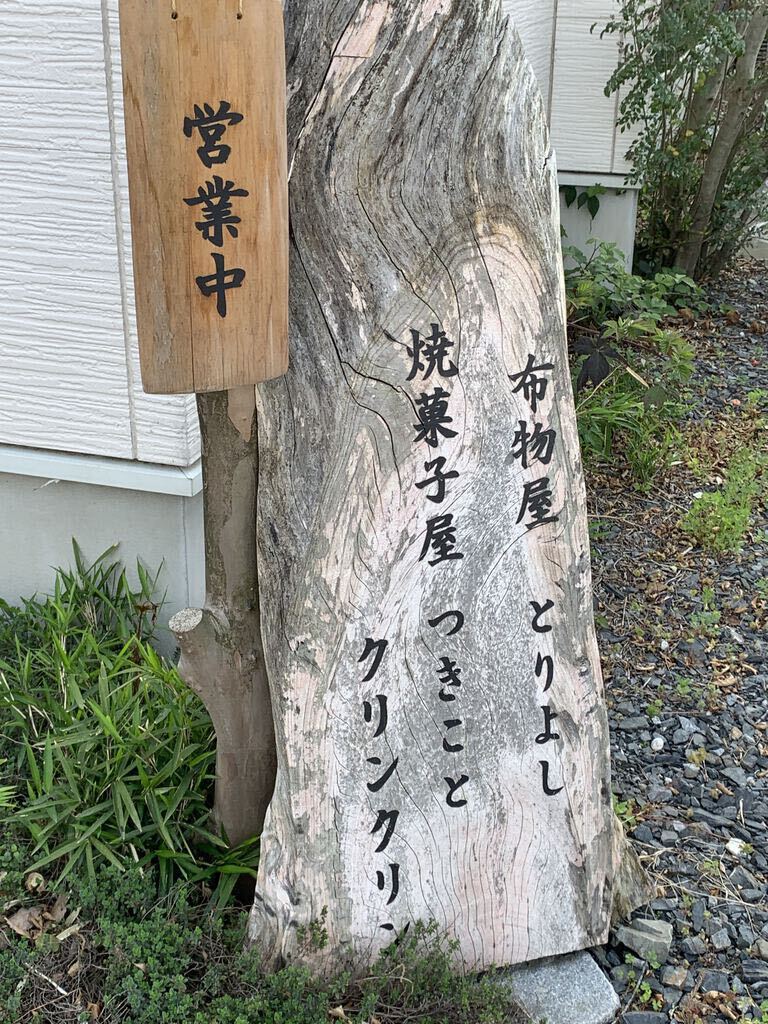 営業中
布物屋 とりよし
焼菓子屋 つきこと
クリンクリン